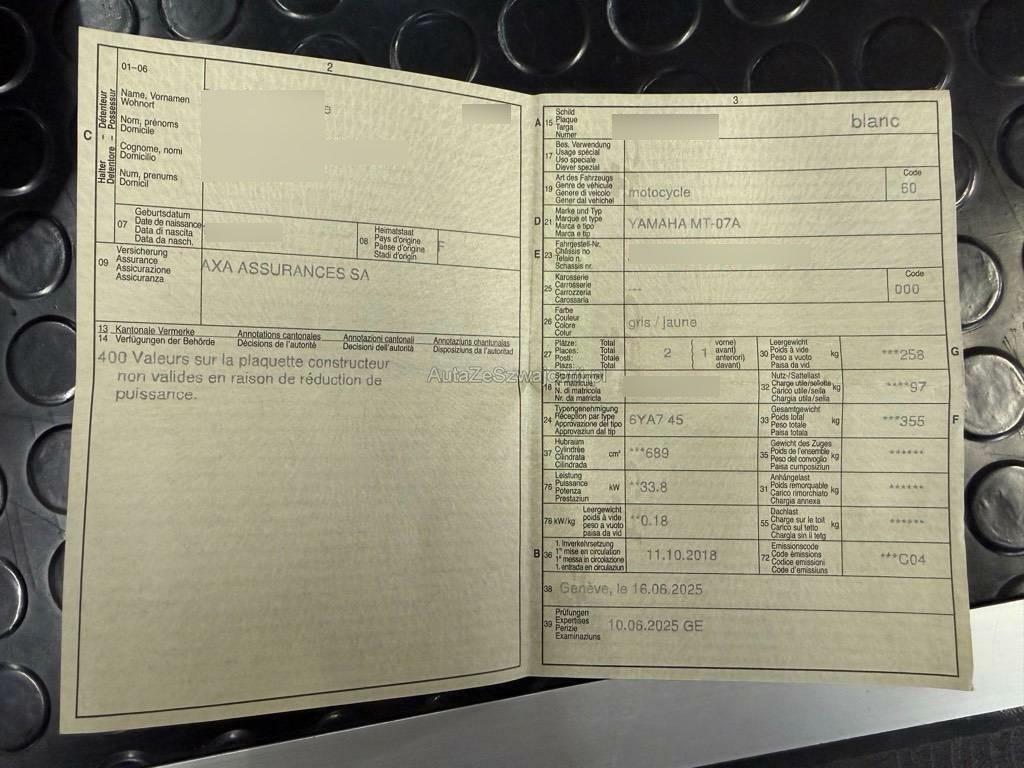 2
01-06
C
Halter – Détenteur
Detentore – Possessur
Name, Vornamen
Wohnort
Nom, prénoms
Domicile
Cognome, nomi
Domicilio
Num, prenums
Domicil
07
Geburtsdatum
Date de naissance
Data di nascita
Data da nasch.
08
Heimatstaat
Pays d'origine
Paese d'origine
Stadi d'origin
F
09
Versicherung
Assurance
Assicurazione
Assicuranza
AXA ASSURANCES SA
13 Kantonale Vermerke Annotations cantonales Annotazioni cantonali Annotaziuns chantunalas
14 Verfügungen der Behörde Décisions de l'autorité Decisioni dell'autorità Disposiziuns da l'autoritad
400 Valeurs sur la plaquette constructeur
non valides en raison de réduction de
puissance.
3
A 15
Schild
Plaque
Targa
Numer
blanc
17
Bes. Verwendung
Usage spécial
Uso speciale
Diever spezial
19
Art des Fahrzeugs
Genre de véhicule
Genere di veicolo
Gener dal vehichel
motocycle
Code
60
D 21
Marke und Typ
Marque et type
Marca e tipo
Marca e tip
YAMAHA MT-07A
E 23
Fahrgestell-Nr.
Châssis no
Telaio n.
Schassis nr.
25
Karosserie
Carrosserie
Carrozzeria
Carossaria
---
Code
000
26
Farbe
Couleur
Colore
Colur
gris / jaune
27
Plätze: Total
Places: Total
Posti: Totale
Plazs: Total
2 ( 1
vorne)
avant)
anteriori)
davant)
30
Leergewicht
Poids à vide
Peso a vuoto
Paisa da vid
kg
***258
G
18
Stammnummer
N° matricule
N. di matricola
Nr. da matricla
32
Nutz-/Sattellast
Charge utile/sellette
Carico utile/sella
Chargia utila/sella
kg
****97
24
Typengenehmigung
Réception par type
Approvazione del tipo
Approvaziun dal tip
6YA7 45
33
Gesamtgewicht
Poids total
Peso totale
Paisa totala
kg
***355
F
37
Hubraum
Cylindrée
Cilindrata
Cilindrada
cm³
**689
35
Gewicht des Zuges
Poids de l'ensemble
Peso del convoglio
Paisa cumposiziun
kg
******
76
Leistung
Puissance
Potenza
Prestaziun
kW
**33.8
31
Anhängelast
Poids remorquable
Carico rimorchiato
Chargia annexa
kg
******
78 kW/kg
Leergewicht
poids à vide
peso a vuoto
paisa da vid
**0.18
55
Dachlast
Charge sur le toit
Carico sul tetto
Chargia sin il tetg
kg
******
B 36
1. Inverkehrsetzung
1re mise en circulation
1a messa in circolazione
1. entrada en circulaziun
11.10.2018
72
Emissionscode
Code émissions
Codice emissioni
Code d'emissiuns
***G04
38
Genève, le 16.06.2025
39
Prüfungen
Expertises
Perizie
Examinaziuns
10.06.2025 GE